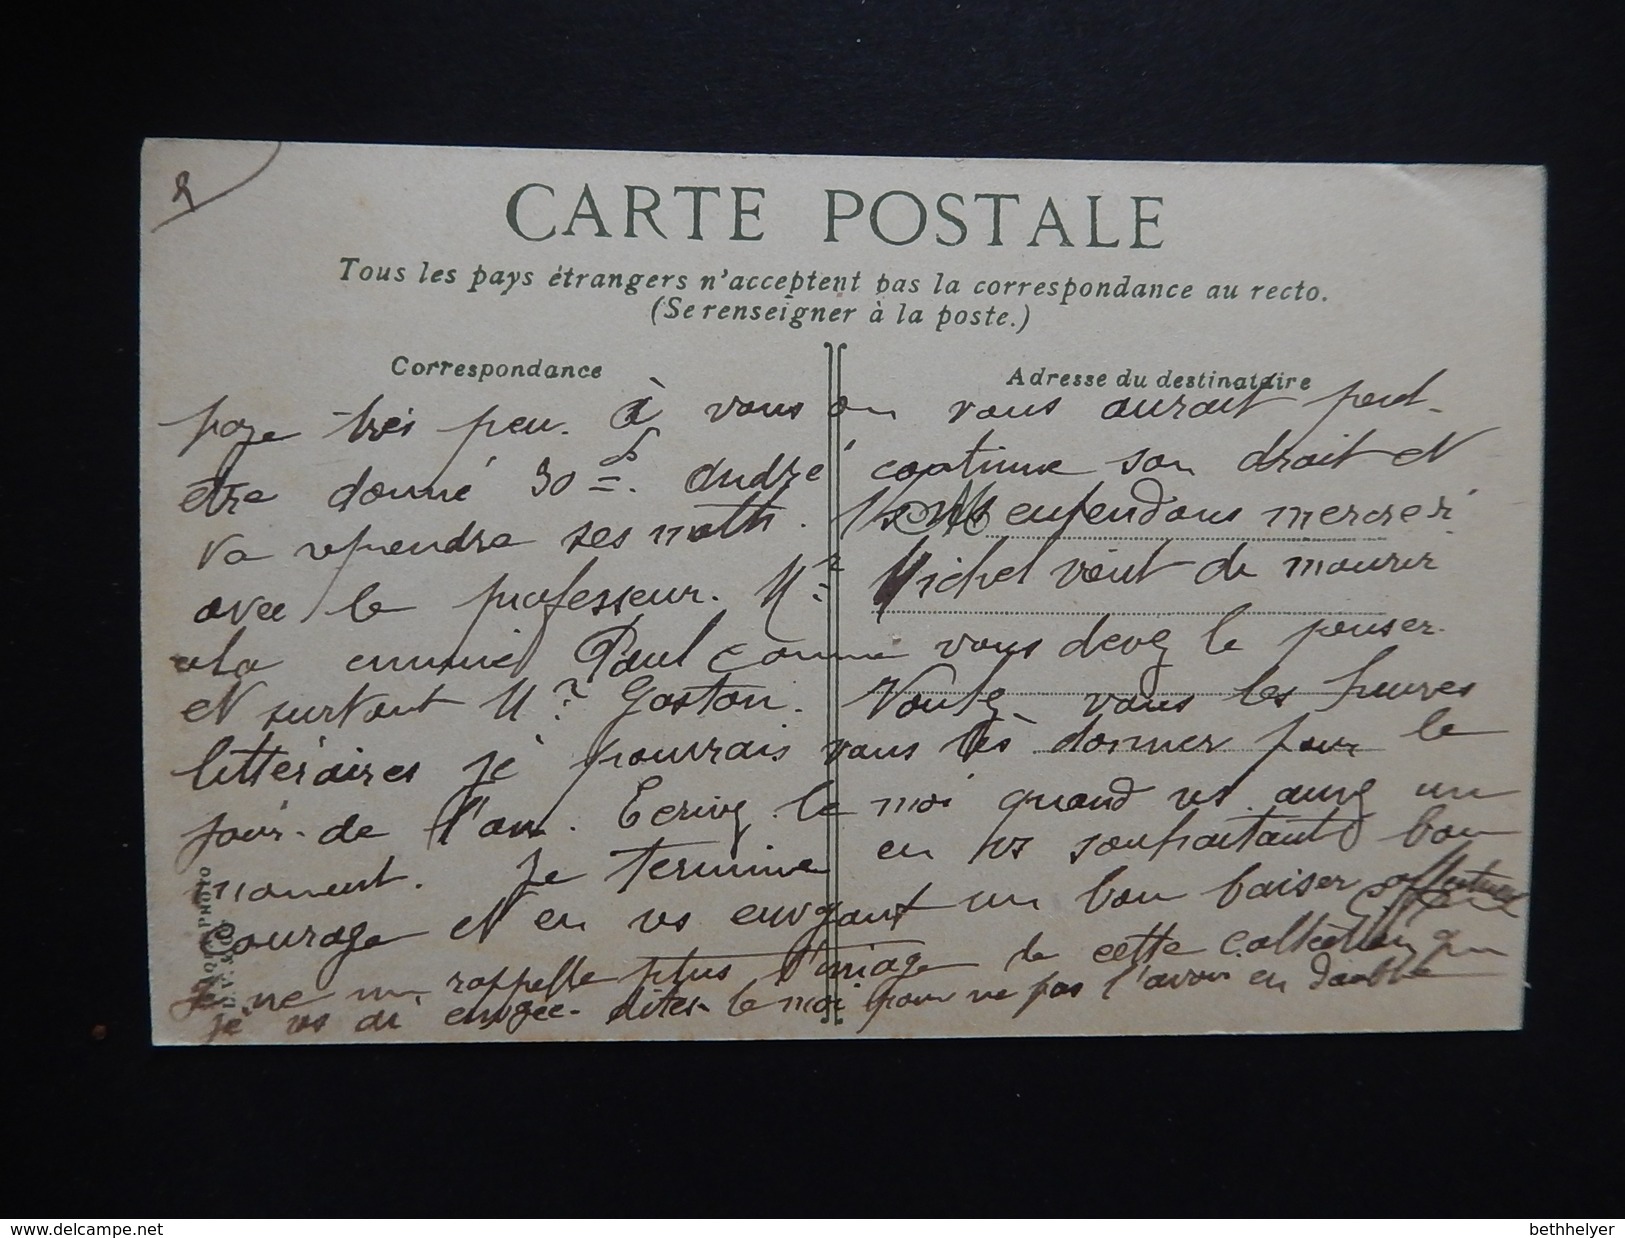 2
CARTE POSTALE
Tous les pays étrangers n'acceptent pas la correspondance au recto.
(Se renseigner à la poste.)
Correspondance
Adresse du destinataire
paze très peu. à vous on vous aurait peut-
être donné 30 =. André continue son droit et
va reprendre ses math. enfendons mercredi
avec le professeur. Mr Michel vient de mourir
a la ennuié Paul comme vous devez le penser.
et surtout Mr Gaston. Voulez vous les heures
littéraires je pourrais vous les donner pour le
jour de l'an. Ecrivez le moi quand vs aurez un
moment. Je termine en vs souhaitant bon
courage et en vs envoyant un bon baiser affectueux
Je ne me rappelle plus l'image de cette collection que
je vs ai envoyée. dites-le moi pour ne pas l'avoir en double
PHOTO
D.V.
www.delcampe.net
bethhelyer